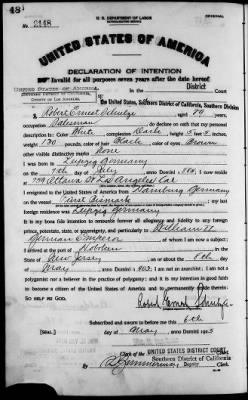 48
U. S. DEPARTMENT OF LABOR
NATURALIZATION SERVICE
ORIGINAL
No. 2148
UNITED STATES OF AMERICA
DECLARATION OF INTENTION
Invalid for all purposes seven years after the date hereof
UNITED STATES OF AMERICA,
SOUTHERN DISTRICT OF CALIFORNIA,
COUNTY OF LOS ANGELES,
District
In the United States, Southern District of California, Southern Division
I, Robert Ernest aged 29 years,
occupation Salesman, do declare on oath that my personal
description is: Color White, complexion Dark, height 5 feet inches,
weight 130 pounds, color of hair Black, color of eyes Brown
other visible distinctive marks None
I was born in Leipzig Germany
on the day of July, anno Domini; I now reside
at Los Angeles Cal
I emigrated to the United States of America from Hamburg Germany
on the vessel Fürst Bismarck; my last
foreign residence was Leipzig Germany
It is my bona fide intention to renounce forever all allegiance and fidelity to any foreign
prince, potentate, state, or sovereignty, and particularly to William II
German Emperor, of whom I am now a subject; I
arrived at the port of Hoboken, in the
State of New Jersey, on or about the day
of May, anno Domini; I am not an anarchist; I am not a
polygamist nor a believer in the practice of polygamy; and it is my intention in good faith
to become a citizen of the United States of America and to permanently reside therein:
SO HELP ME GOD.
Robert Ernest
Subscribed and sworn to before me this 6th
[SEAL] day of May, anno Domini 1913
Clerk of the UNITED STATES DISTRICT COURT
Southern District of California
By Zimmerman, Deputy Clerk.